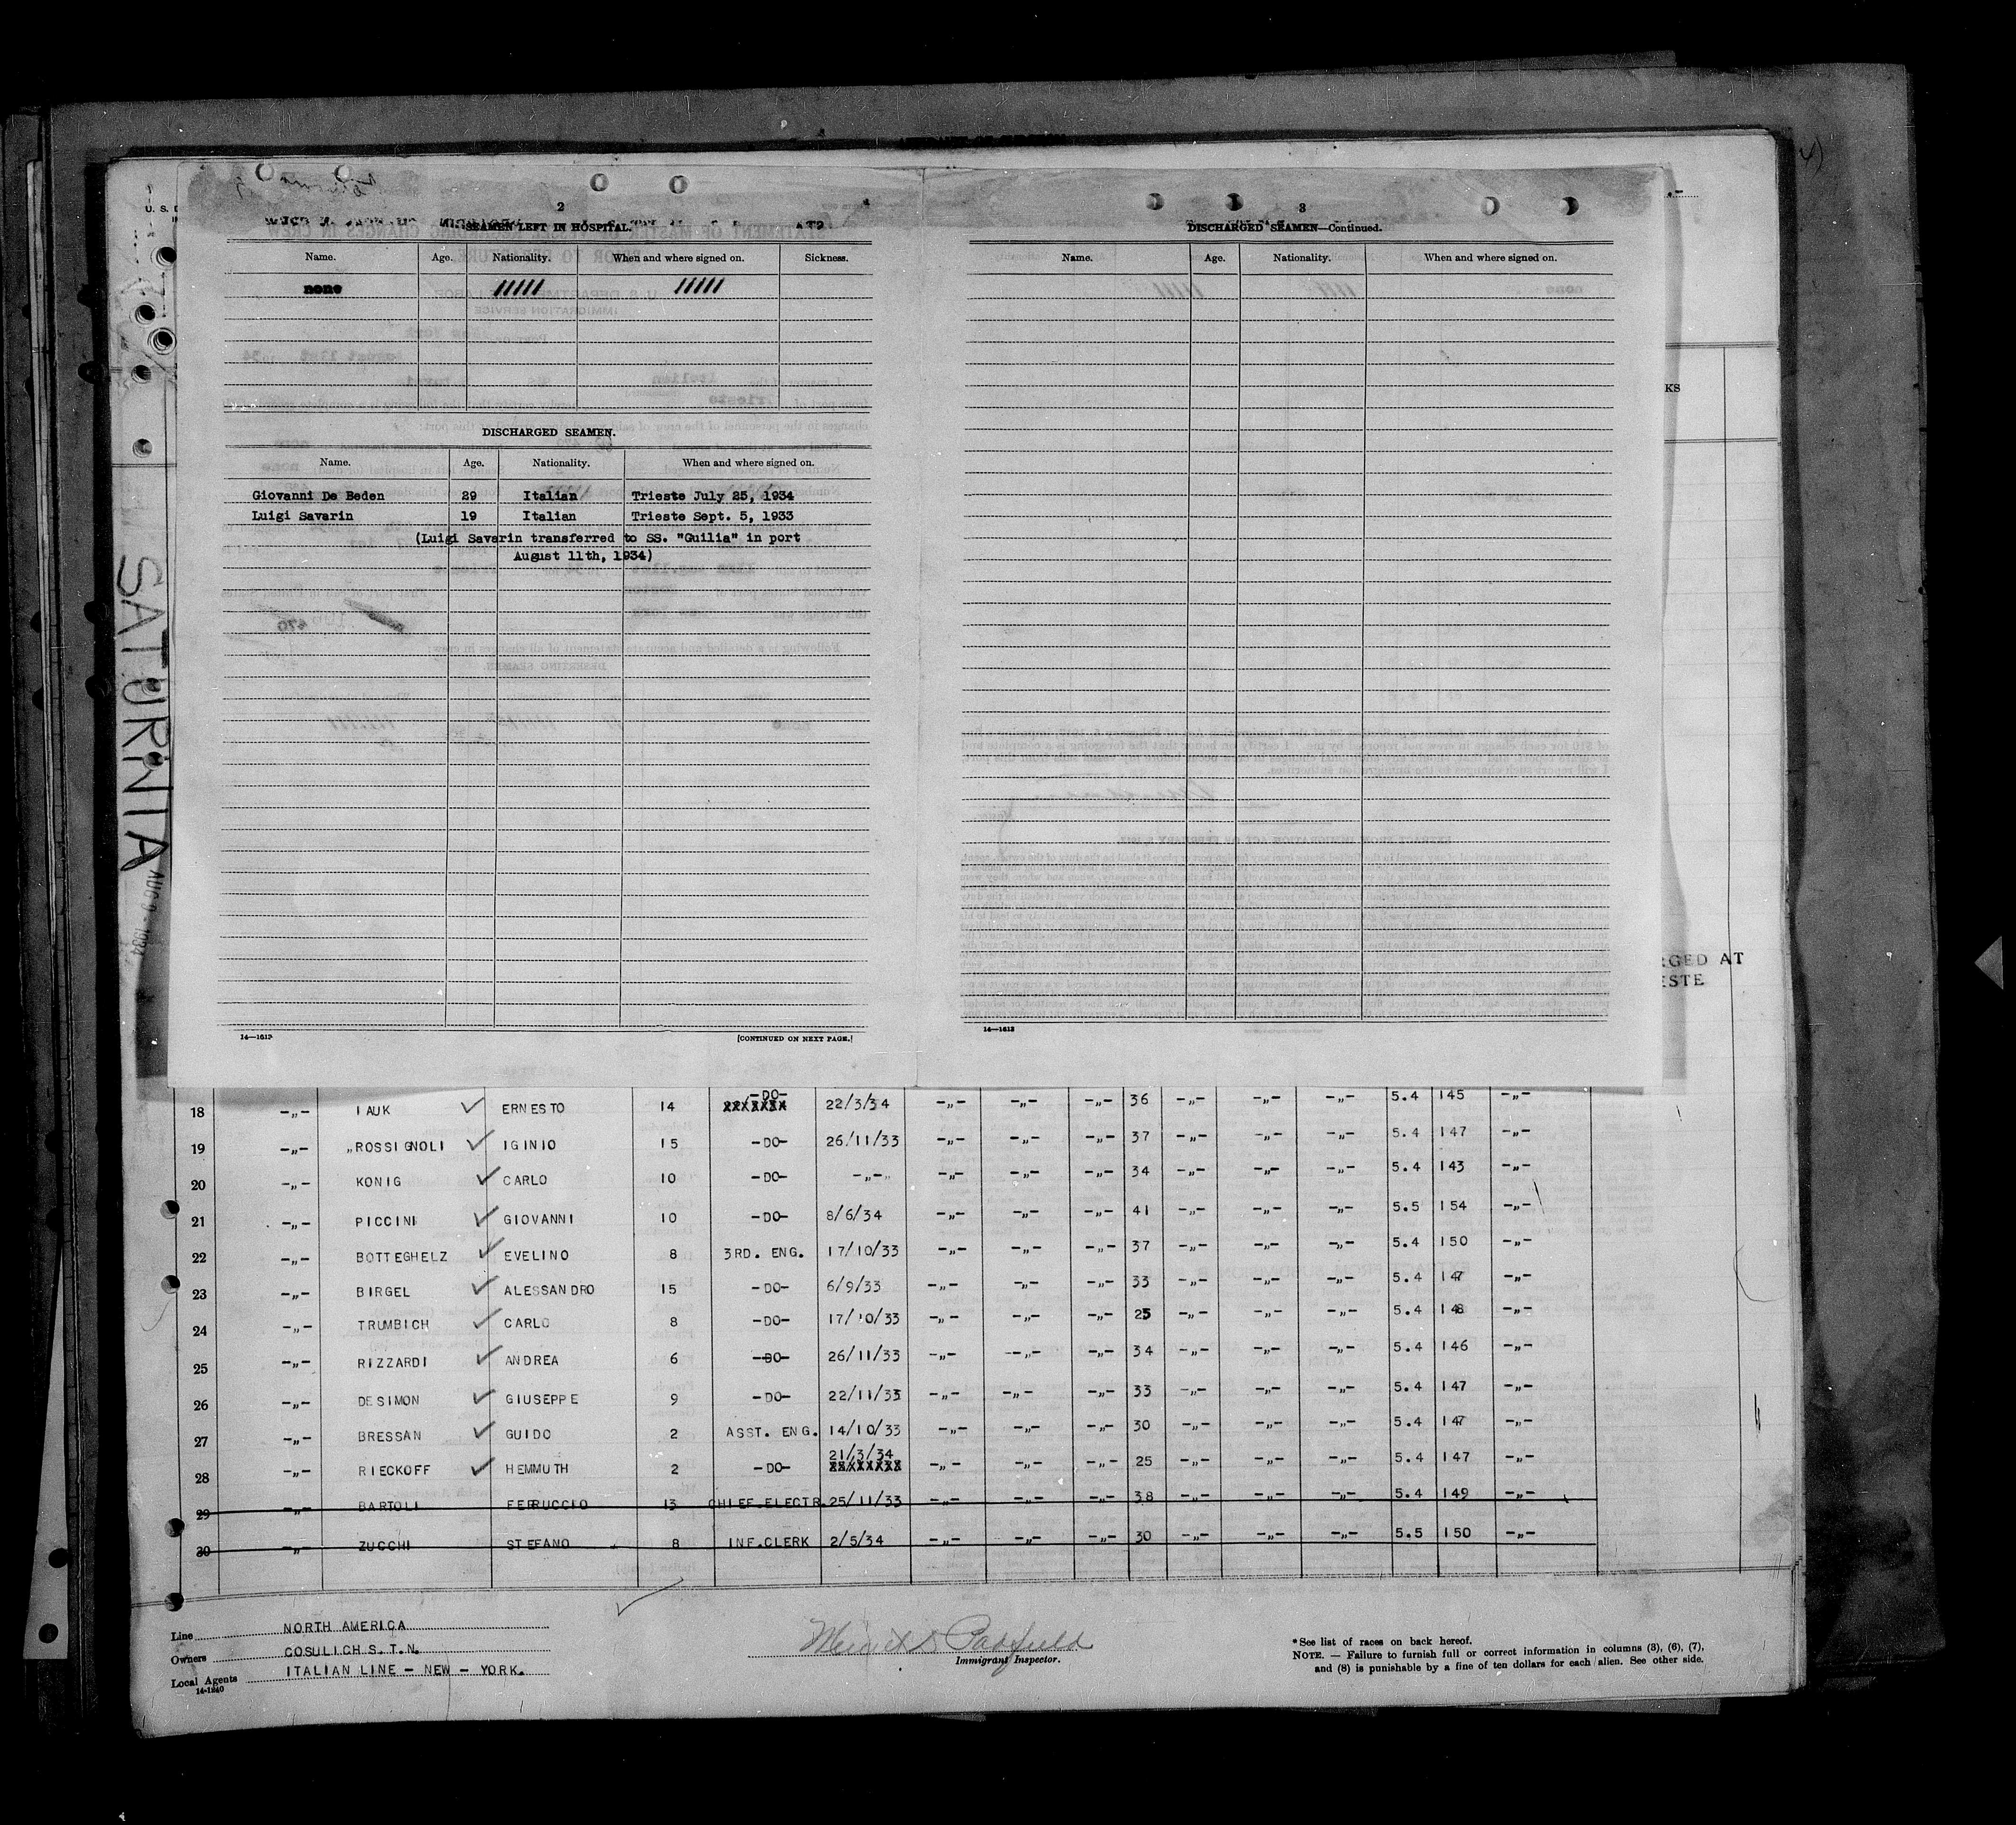 2
SEAMEN LEFT IN HOSPITAL.
Name. Age. Nationality. When and where signed on. Sickness.
none
DISCHARGED SEAMEN.
Name. Age. Nationality. When and where signed on.
Giovanni De Beden 29 Italian Trieste July 25, 1934
Luigi Savarin 19 Italian Trieste Sept. 5, 1933
(Luigi Savarin transferred to SS. "Guilia" in port
August 11th, 1934)
14—1613
[CONTINUED ON NEXT PAGE.]
3
DISCHARGED SEAMEN—Continued.
Name. Age. Nationality. When and where signed on.
14—1613
U. S.
KS
RGED AT
ESTE
SATURNIA
AUG 9 - 1934
18 -„- IAUK ✓ ERNESTO 14 -DO- 22/3/34 -„- -„- -„- 36 -„- -„- -„- 5.4 145 -„-
19 -„- „ROSSIGNOLI ✓ IGINIO 15 -DO- 26/11/33 -„- -„- -„- 37 -„- -„- -„- 5.4 147 -„-
20 -„- KONIG ✓ CARLO 10 -DO- -„- -„- -„- -„- 34 -„- -„- -„- 5.4 143 -„-
21 -„- PICCINI ✓ GIOVANNI 10 -DO- 8/6/34 -„- -„- -„- 41 -„- -„- -„- 5.5 154 -„-
22 -„- BOTTEGHELZ ✓ EVELINO 8 3RD. ENG. 17/10/33 -„- -„- -„- 37 -„- -„- -„- 5.4 150 -„-
23 -„- BIRGEL ✓ ALESSANDRO 15 -DO- 6/9/33 -„- -„- -„- 33 -„- -„- -„- 5.4 147 -„-
24 -„- TRUMBICH ✓ CARLO 8 -DO- 17/10/33 -„- -„- -„- 25 -„- -„- -„- 5.4 148 -„-
25 -„- RIZZARDI ✓ ANDREA 6 -DO- 26/11/33 -„- -„- -„- 34 -„- -„- -„- 5.4 146 -„-
26 -„- DESIMON ✓ GIUSEPPE 9 -DO- 22/11/33 -„- -„- -„- 33 -„- -„- -„- 5.4 147 -„-
27 -„- BRESSAN ✓ GUIDO 2 ASST. ENG. 14/10/33 -„- -„- -„- 30 -„- -„- -„- 5.4 147 -„-
28 -„- RIECKOFF ✓ HEMMUTH 2 -DO- 21/3/34 -„- -„- -„- 25 -„- -„- -„- 5.4 147 -„-
29 -„- BARTOLI FERRUCCIO 13 CHIEF.ELECTR. 25/11/33 -„- -„- -„- 38 -„- -„- -„- 5.4 149 -„-
30 -„- ZUCCHI STEFANO 8 INF.CLERK 2/5/34 -„- -„- -„- 30 -„- -„- -„- 5.5 150 -„-
Line NORTH AMERICA
Owners COSULICH S.T.N.
Local Agents ITALIAN LINE - NEW - YORK.
14-1240
Immigrant Inspector.
*See list of races on back hereof.
NOTE. — Failure to furnish full or correct information in columns (3), (6), (7),
and (8) is punishable by a fine of ten dollars for each alien. See other side.